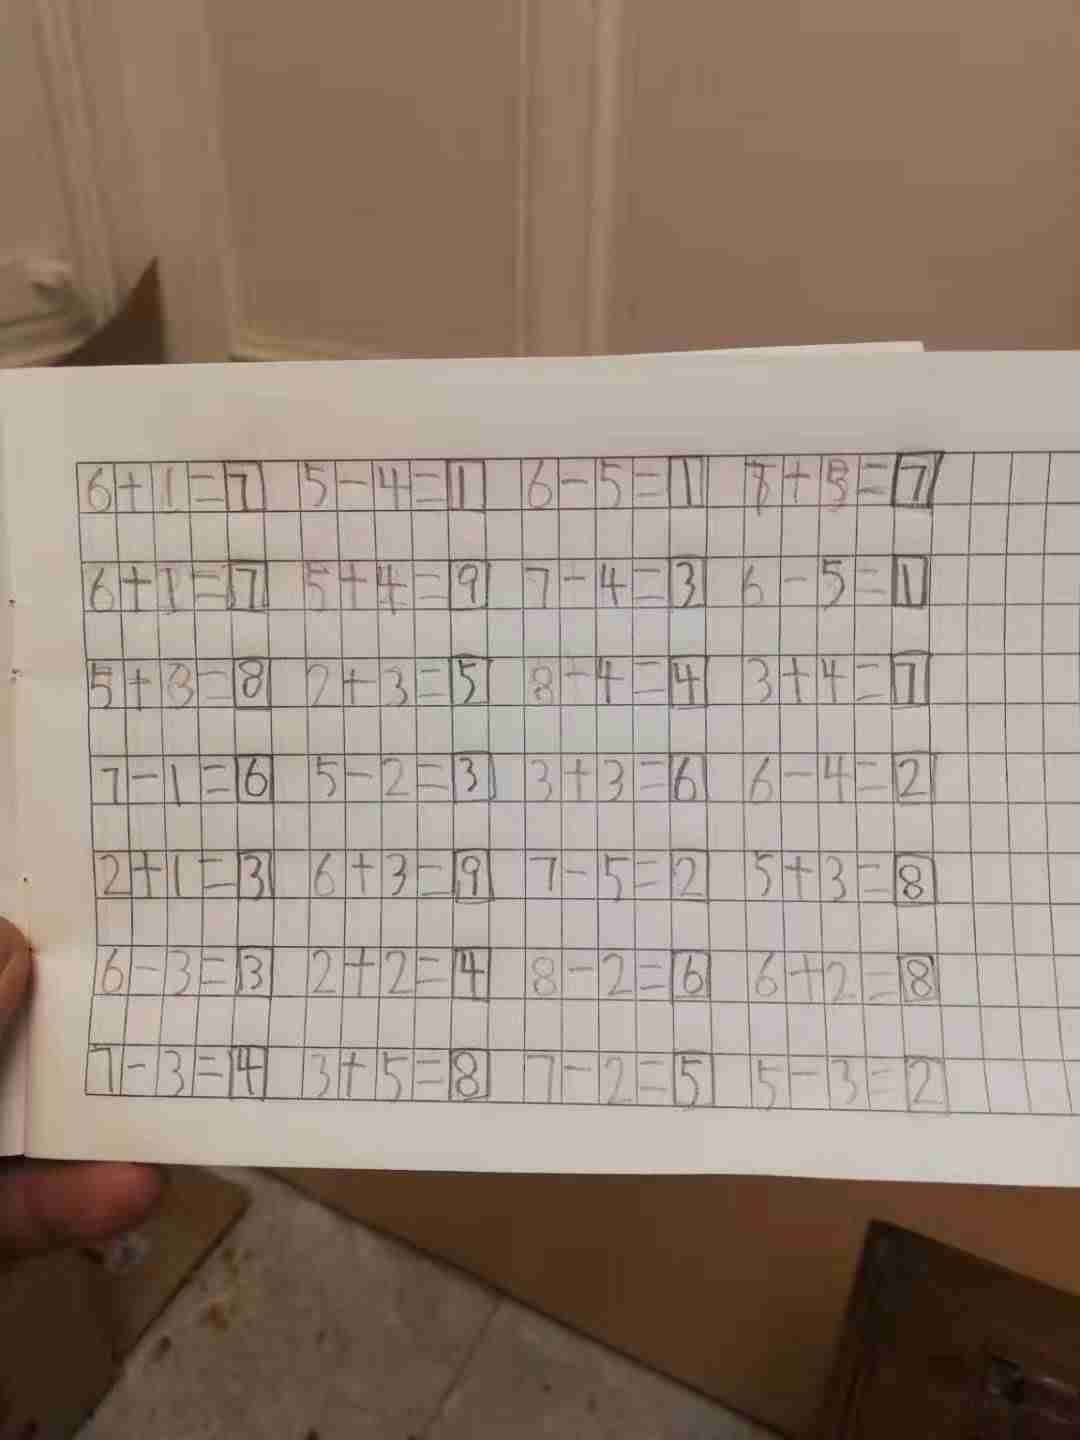 6+1=7 5-4=1 6-5=1 +=7
6+1=7 5+4=9 7-4=3 6-5=1
5+3=8 2+3=5 8-4=4 3+4=7
7-1=6 5-2=3 3+3=6 6-4=2
2+1=3 6+3=9 7-5=2 5+3=8
6-3=3 2+2=4 8-2=6 6+2=8
7-3=4 3+5=8 7-2=5 5-3=2